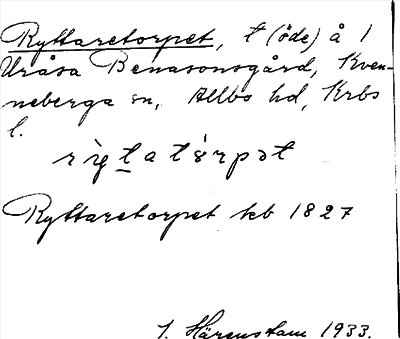 Ryttaretorpet, t (öde) å 1
Uråsa Benasonsgård, Kven-
neberga sn, Allbo hd, Krbs
l.
Ryttaretorpet kb 1827
J. Härenstam 1933.